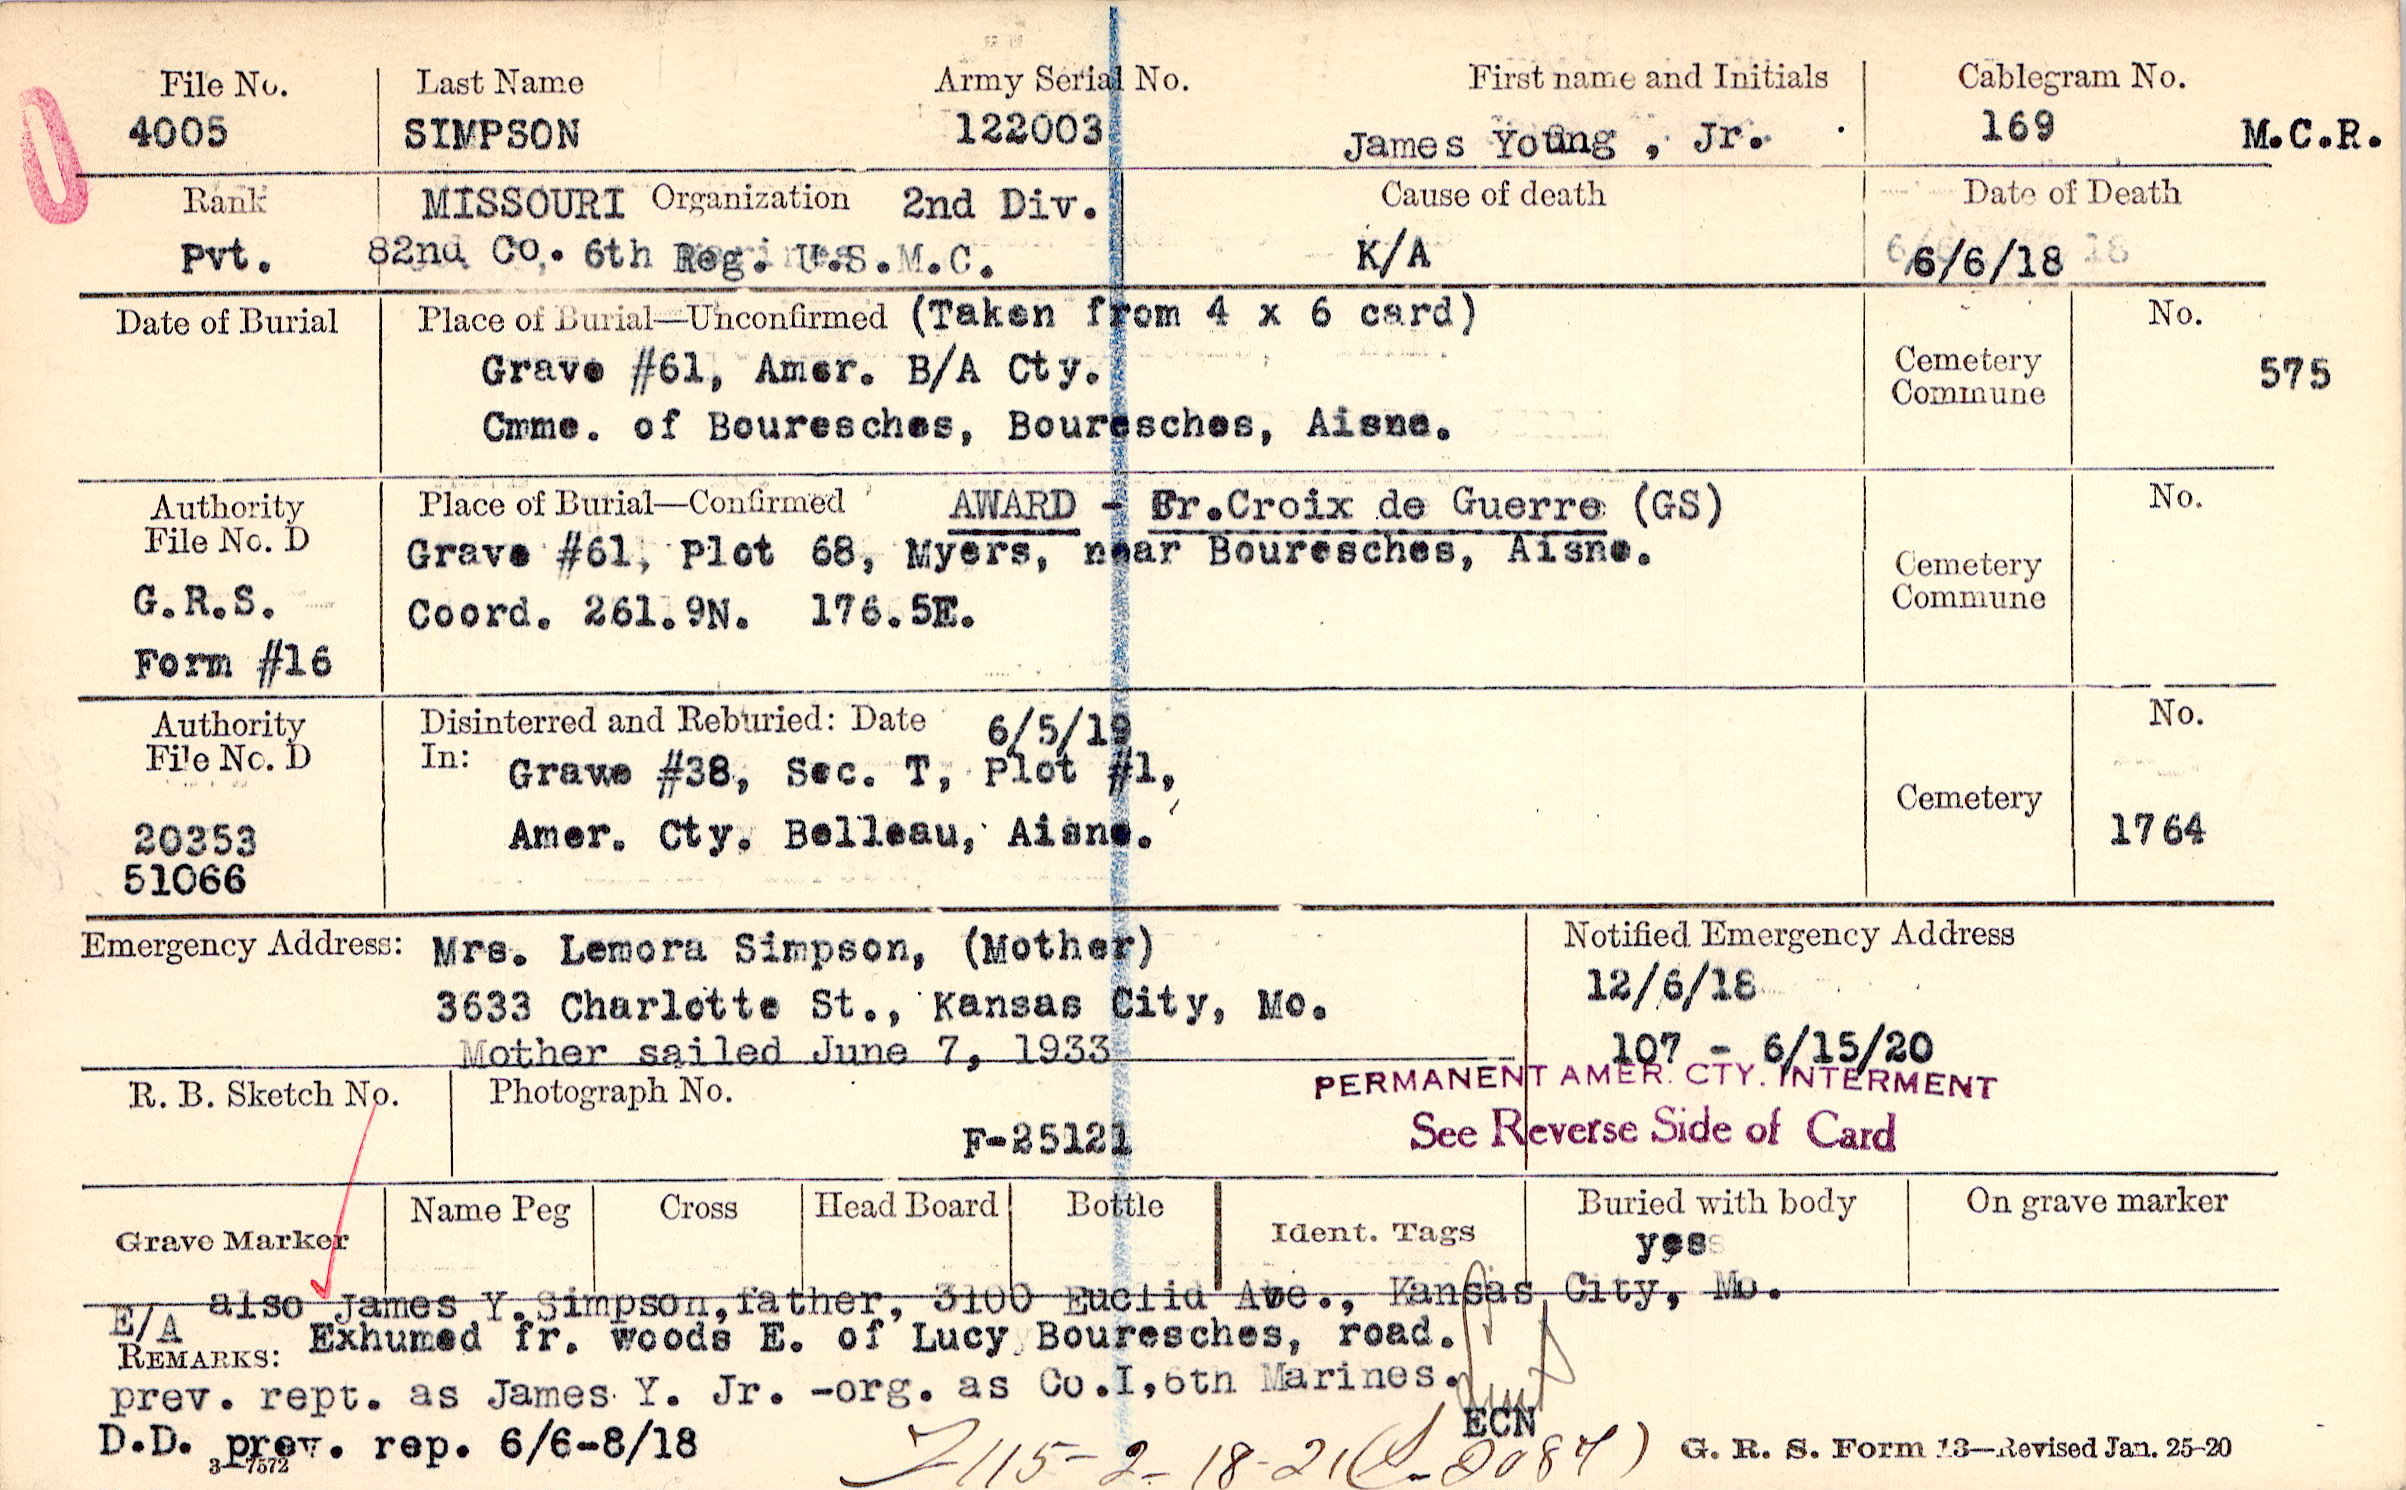 File No. Last Name Army Serial No. First name and Initials Cablegram No.
4005 SIMPSON 122003 James Young , Jr. 169 M.C.R.
Rank MISSOURI Organization 2nd Div. Cause of death Date of Death
Pvt. 82nd Co. 6th Reg. U.S.M.C. K/A 6/6/18
Date of Burial Place of Burial—Unconfirmed (Taken from 4 x 6 card) No.
Grave #61, Amer. B/A Cty. Cemetery 575
Commune
Cmme. of Bouresches, Bouresches, Aisne.
Authority Place of Burial—Confirmed AWARD - Fr.Croix de Guerre (GS) No.
File No. D Grave #61, Plot 68, Myers, near Bouresches, Aisne. Cemetery
G.R.S. Coord. 261.9N. 176.5E. Commune
Form #16
Authority Disinterred and Reburied: Date 6/5/19 No.
File No. D In: Grave #38, Sec. T, Plot #1,
Cemetery
20353 Amer. Cty. Belleau, Aisne. 1764
51066
Emergency Address: Mrs. Lemora Simpson, (Mother) Notified Emergency Address
3633 Charlotte St., Kansas City, Mo. 12/6/18
Mother sailed June 7, 1933 107 - 6/15/20
PERMANENT AMER. CTY. INTERMENT
R. B. Sketch No. Photograph No.
F-25121 See Reverse Side of Card
Grave Marker Name Peg Cross Head Board Bottle Ident. Tags Buried with body On grave marker
yes
E/A also James Y. Simpson, father, 3100 Euclid Ave., Kansas City, Mo.
REMARKS: Exhumed fr. woods E. of Lucy Bouresches, road.
prev. rept. as James Y. Jr. -org. as Co.I,6th Marines.
ECN
D.D. prev. rep. 6/6-8/18
3—7572 115-2-18-21 G. R. S. Form 13—Revised Jan. 25-20